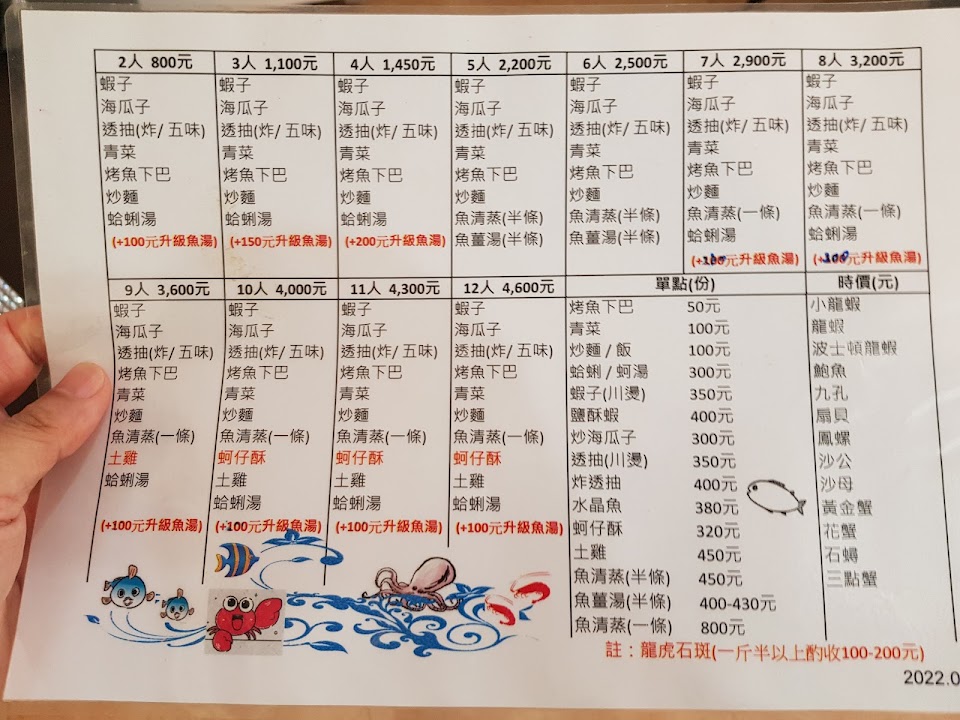 2人 800元
蝦子
海瓜子
透抽(炸/ 五味)
青菜
烤魚下巴
炒麵
蛤蜊湯
(+100元升級魚湯)
3人 1,100元
蝦子
海瓜子
透抽(炸/ 五味)
青菜
烤魚下巴
炒麵
蛤蜊湯
(+150元升級魚湯)
4人 1,450元
蝦子
海瓜子
透抽(炸/ 五味)
青菜
烤魚下巴
炒麵
蛤蜊湯
(+200元升級魚湯)
5人 2,200元
蝦子
海瓜子
透抽(炸/ 五味)
青菜
烤魚下巴
炒麵
魚清蒸(半條)
魚薑湯(半條)
6人 2,500元
蝦子
海瓜子
透抽(炸/ 五味)
青菜
烤魚下巴
炒麵
魚清蒸(半條)
魚薑湯(半條)
7人 2,900元
蝦子
海瓜子
透抽(炸/ 五味)
青菜
烤魚下巴
炒麵
魚清蒸(一條)
蛤蜊湯
元升級魚湯)
8人 3,200元
蝦子
海瓜子
透抽(炸/ 五味)
青菜
烤魚下巴
炒麵
魚清蒸(一條)
蛤蜊湯
元升級魚湯)
9人 3,600元
蝦子
海瓜子
透抽(炸/ 五味)
烤魚下巴
青菜
炒麵
魚清蒸(一條)
土雞
蛤蜊湯
(+100元升級魚湯)
10人 4,000元
蝦子
海瓜子
透抽(炸/ 五味)
烤魚下巴
青菜
炒麵
魚清蒸(一條)
蚵仔酥
土雞
蛤蜊湯
(+100元升級魚湯)
11人 4,300元
蝦子
海瓜子
透抽(炸/ 五味)
烤魚下巴
青菜
炒麵
魚清蒸(一條)
蚵仔酥
土雞
蛤蜊湯
(+100元升級魚湯)
12人 4,600元
蝦子
海瓜子
透抽(炸/ 五味)
烤魚下巴
青菜
炒麵
魚清蒸(一條)
蚵仔酥
土雞
蛤蜊湯
(+100元升級魚湯)
單點(份)
烤魚下巴 50元
青菜 100元
炒麵 / 飯 100元
蛤蜊 / 蚵湯 300元
蝦子(川燙) 350元
鹽酥蝦 400元
炒海瓜子 300元
透抽(川燙) 350元
炸透抽 400元
水晶魚 380元
蚵仔酥 320元
土雞 450元
魚清蒸(半條) 450元
魚薑湯(半條) 400-430元
魚清蒸(一條) 800元
時價(元)
小龍蝦
龍蝦
波士頓龍蝦
鮑魚
九孔
扇貝
鳳螺
沙公
沙母
黃金蟹
花蟹
石蟳
三點蟹
註：龍虎石斑(一斤半以上酌收100-200元)
2022.0